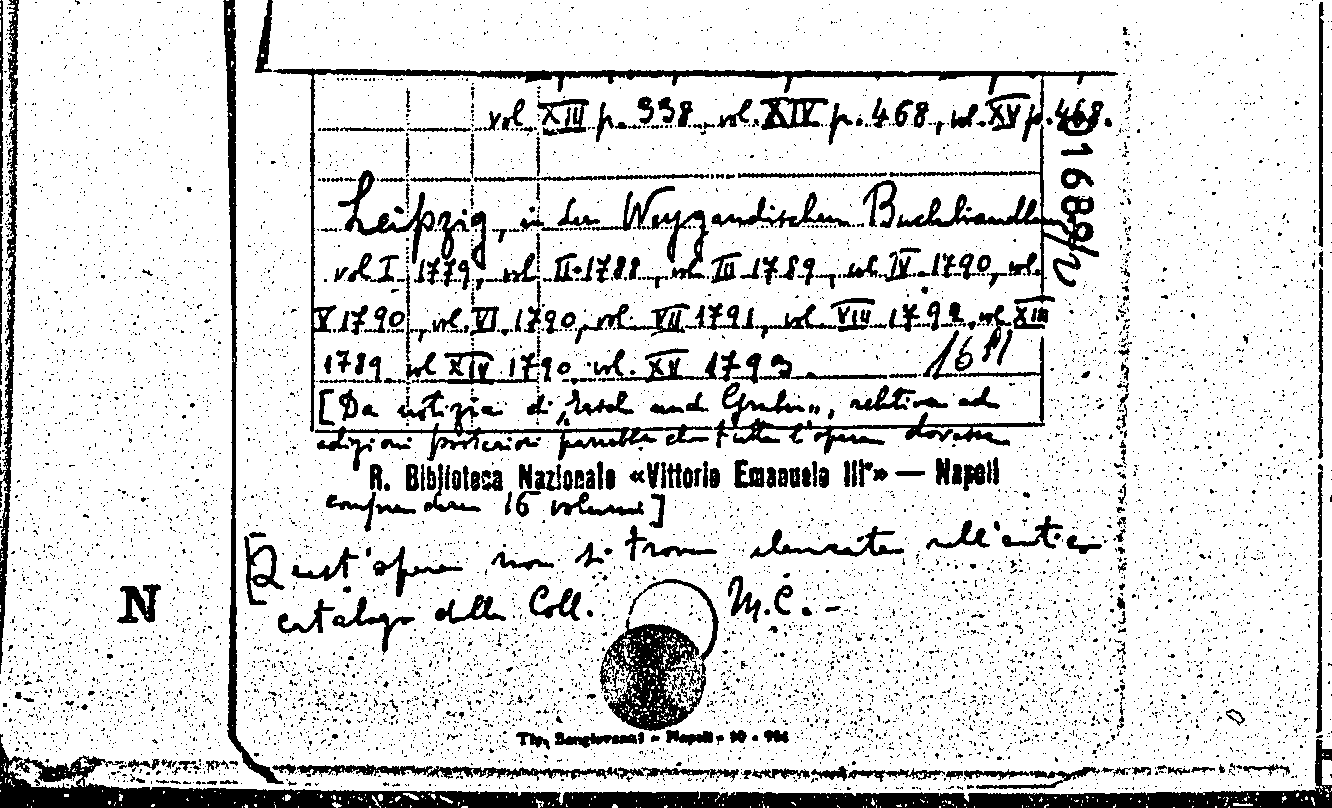 vol XIII p. 338, vol. XIV p. 468, vol. XV p. 468.
Leipzig, in der Weygandischen Buchhandlung
vol I 1779, vol II 1788, vol III 1789, vol IV 1790, vol.
V 1790, vol. VI 1790, vol. VII 1791, vol. VIII 1792, vol XIII
1789 vol XIV 1790 vol. XV 1793.
[Da notizia di "Ersch und Gruber", relativa ad
edizioni posteriori parrebbe che tutta l'opera dovesse
R. Biblioteca Nazionale «Vittorio Emanuele III°» — Napoli
comprendere 16 volumi]
[Quest'opera non si trova elencata nell'antico
catalogo della Coll. M.C. -
N
Tip. Sangiovanni - Napoli -